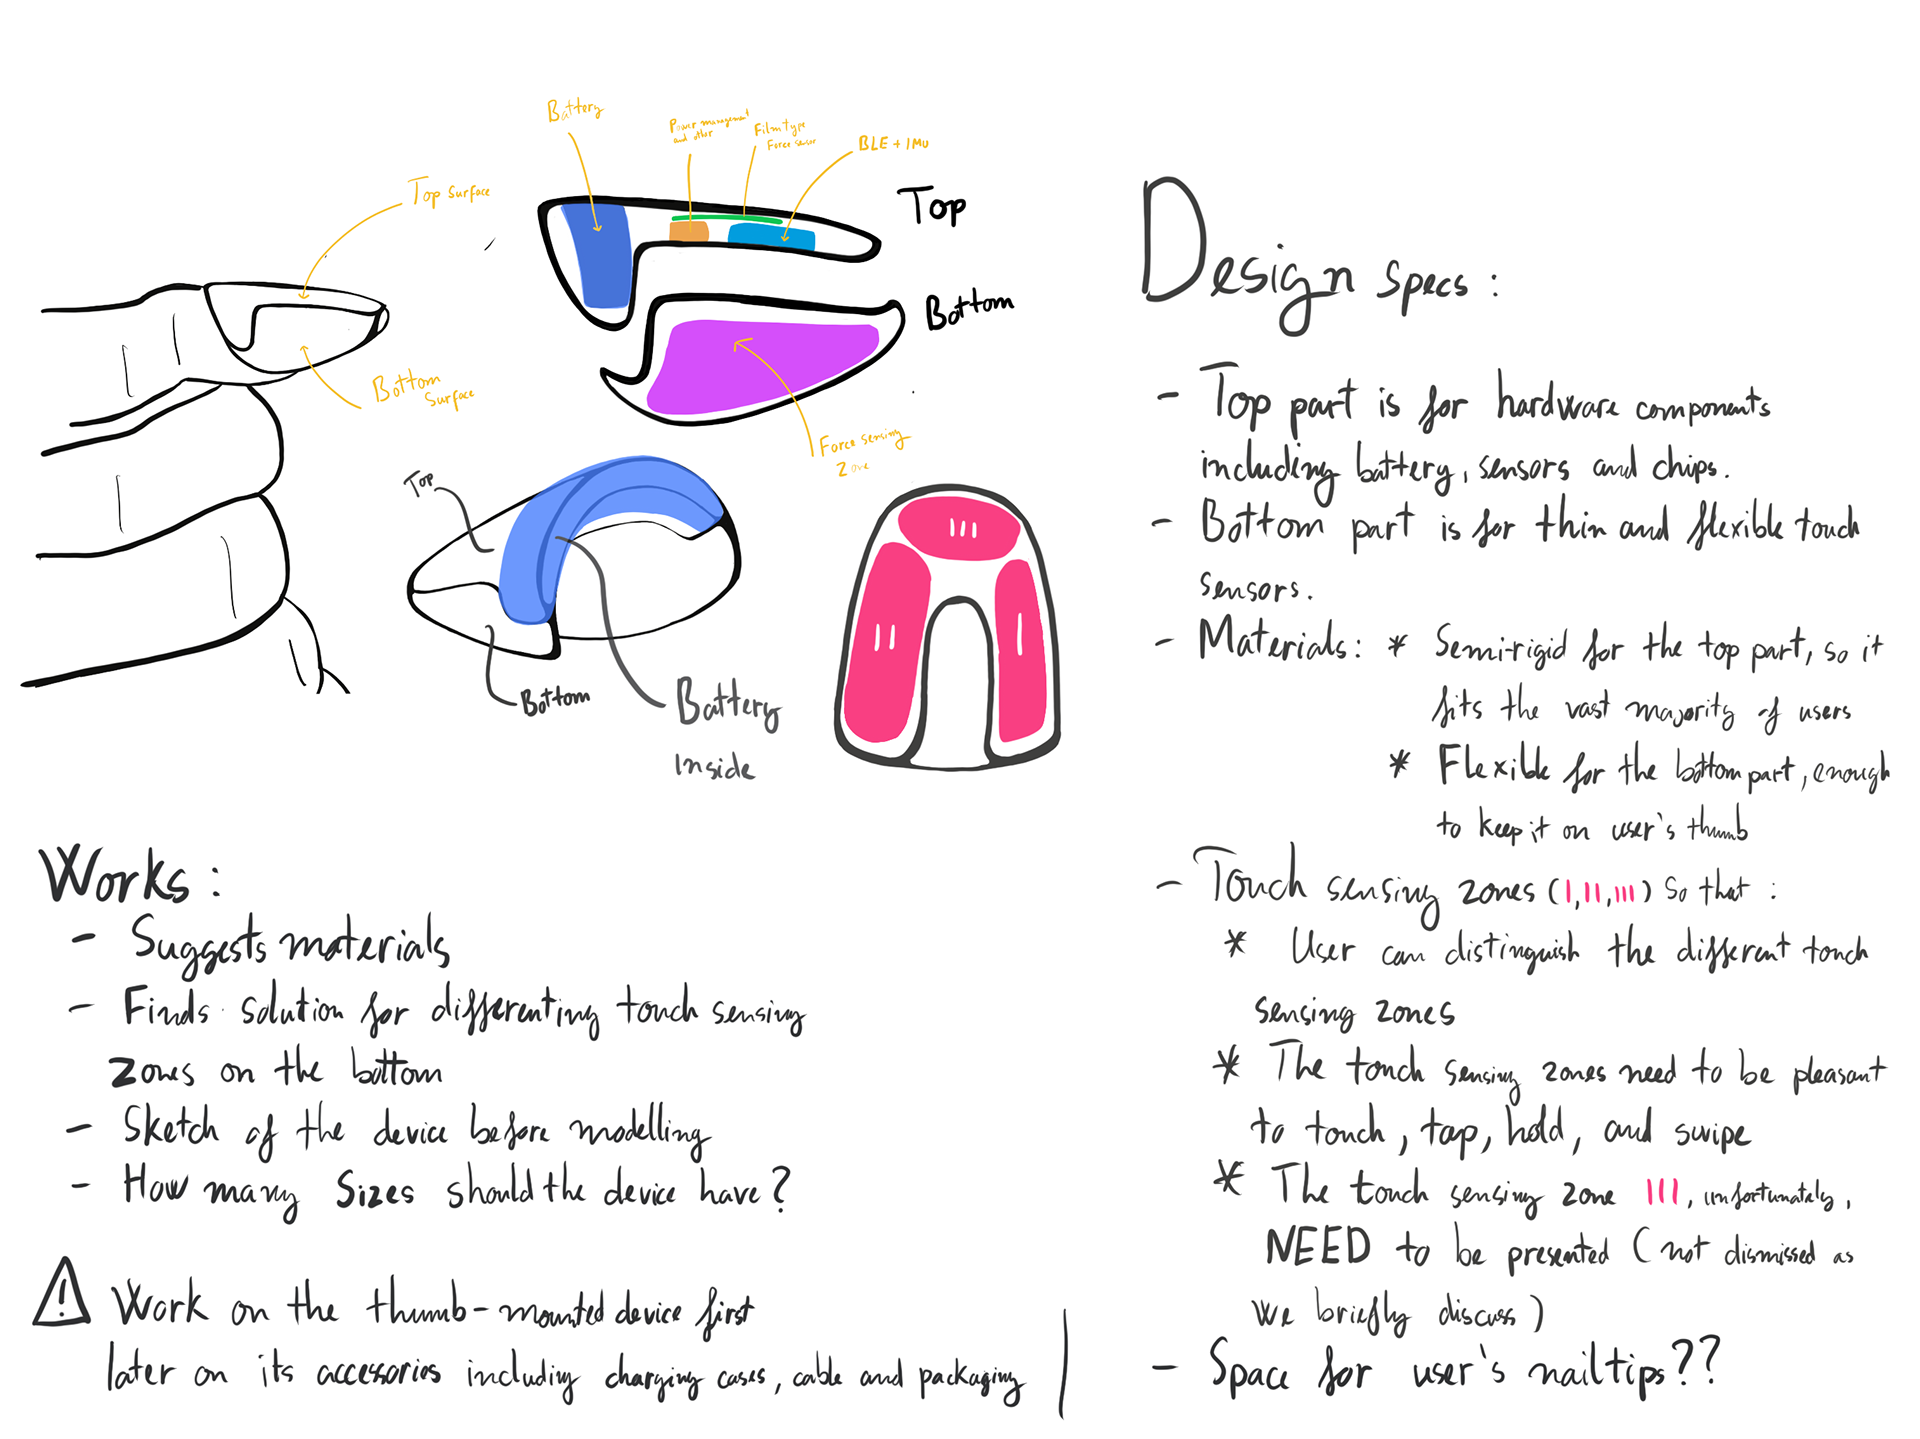 Battery
Power management
and other
Film type
Force sensor
BLE + IMU
Top surface
Top
Bottom
Bottom
Surface
Force sensing
Zone
Top
Bottom
Battery
inside
III
II
I
Works :
- Suggests materials
- Finds solution for differenting touch sensing
zones on the bottom
- Sketch of the device before modelling
- How many sizes should the device have?
! Work on the thumb-mounted device first
later on its accessories including charging cases, cable and packaging
Design specs :
- Top part is for hardware components
including battery, sensors and chips.
- Bottom part is for thin and flexible touch
sensors.
- Materials: * Semi-rigid for the top part, so it
fits the vast majority of users
* Flexible for the bottom part, enough
to keep it on user's thumb
- Touch sensing zones (I, II, III) so that :
* User can distinguish the different touch
sensing zones
* The touch sensing zones need to be pleasant
to touch, tap, hold, and swipe
* The touch sensing zone III, unfortunately,
NEED to be presented (not dismissed as
we briefly discuss)
- Space for user's nail tips??